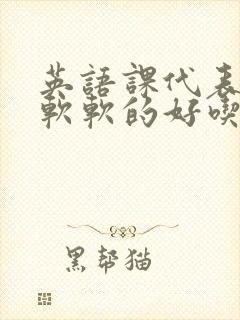 英語課代表
軟軟的好喫
黑幫猫